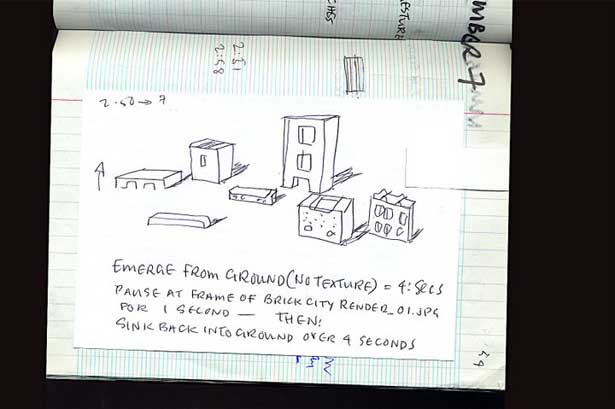 MBER 7
ESTURE
CHES
2:51
2:58
2.50 → 7
EMERGE FROM GROUND (NO TEXTURE) = 4: SECS
PAUSE AT FRAME OF BRICK CITY RENDER_01.JPG
FOR 1 SECOND — THEN:
SINK BACK INTO GROUND OVER 4 SECONDS